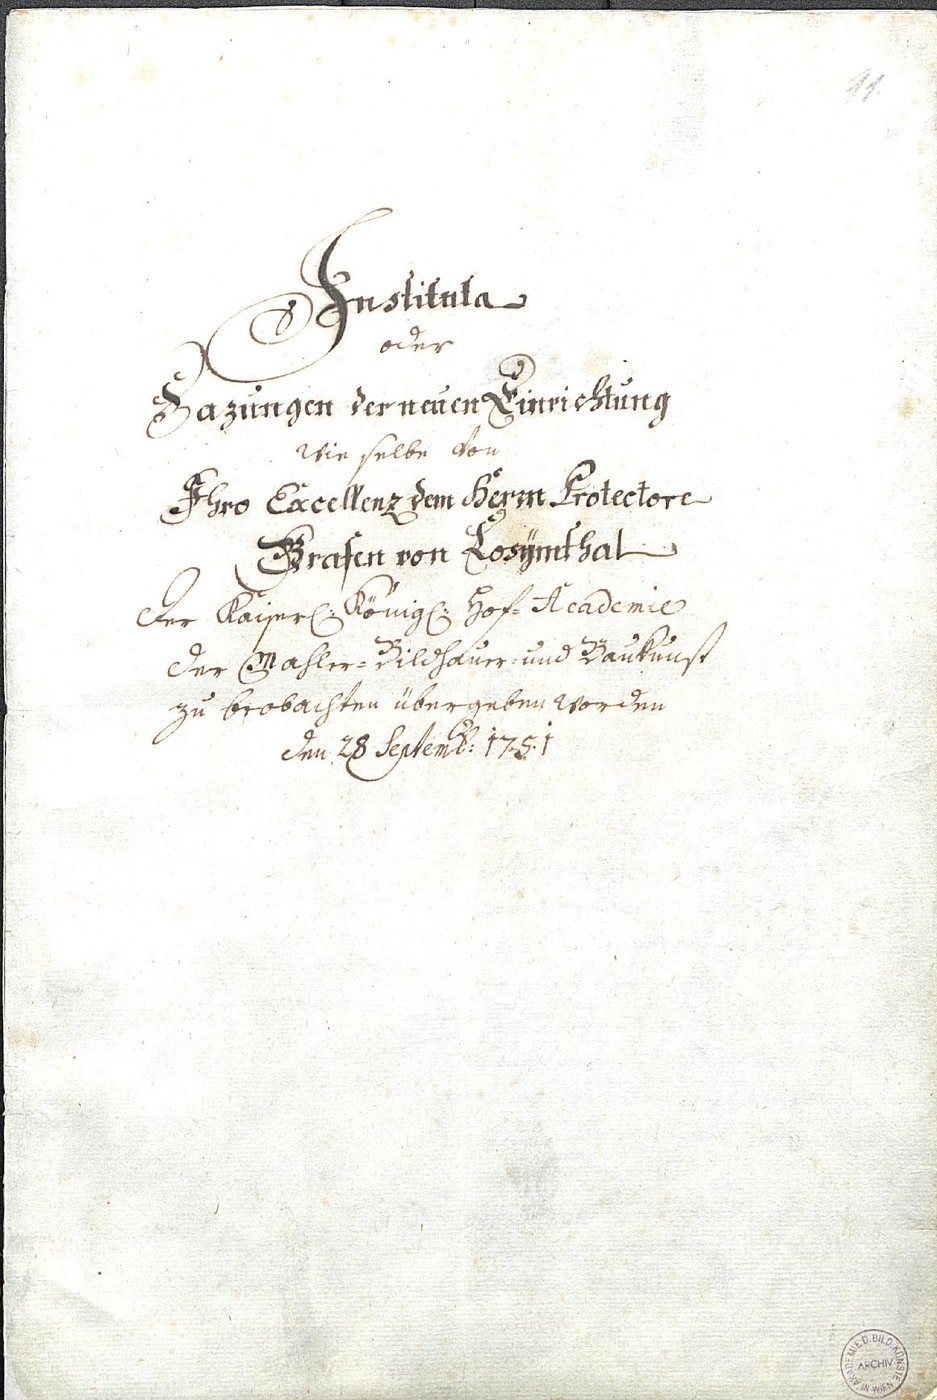 91.
Instituta
oder
Sazungen der neuen Einrichtung
wie selbe von
Ihro Excellenz dem Herrn Protectore
Grafen von Losÿmthal
der Kaiserl: Königl: Hof= Academie
der Mahler= Bildhauer= und Baukunst
zu beobachten übergeben worden
den 28 Septembr: 1751
AKADEMIE D. BILD. KÜNSTE
ARCHIV
IN WIEN